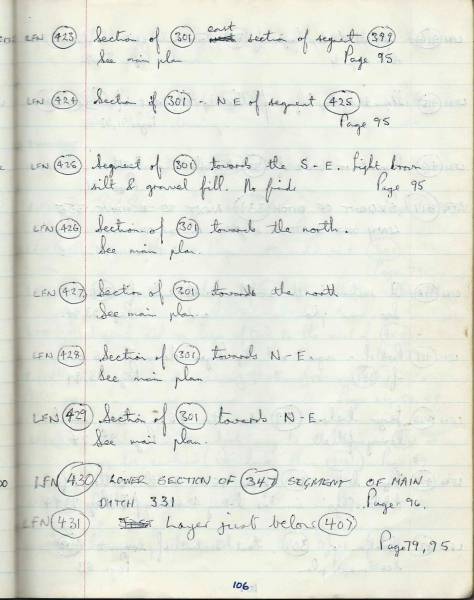 LFN 423 Section of 301 east section of segment 399
See main plan Page 95
LFN 424 Section of 301 - N E of segment 425
Page 95
LFN 425 Segment of 301 towards the S - E. Light brown
silt & gravel fill. No finds Page 95
LFN 426 Section of 301 towards the north.
See main plan.
LFN 427 Section of 301 towards the north
See main plan.
LFN 428 Section of 301 towards N - E.
See main plan
LFN 429 Section of 301 towards N - E.
See main plan.
LFN 430 LOWER SECTION OF 347 SEGMENT OF MAIN
DITCH 331 Page 96.
LFN 431 Layer just below 407
Page 79, 95.
106